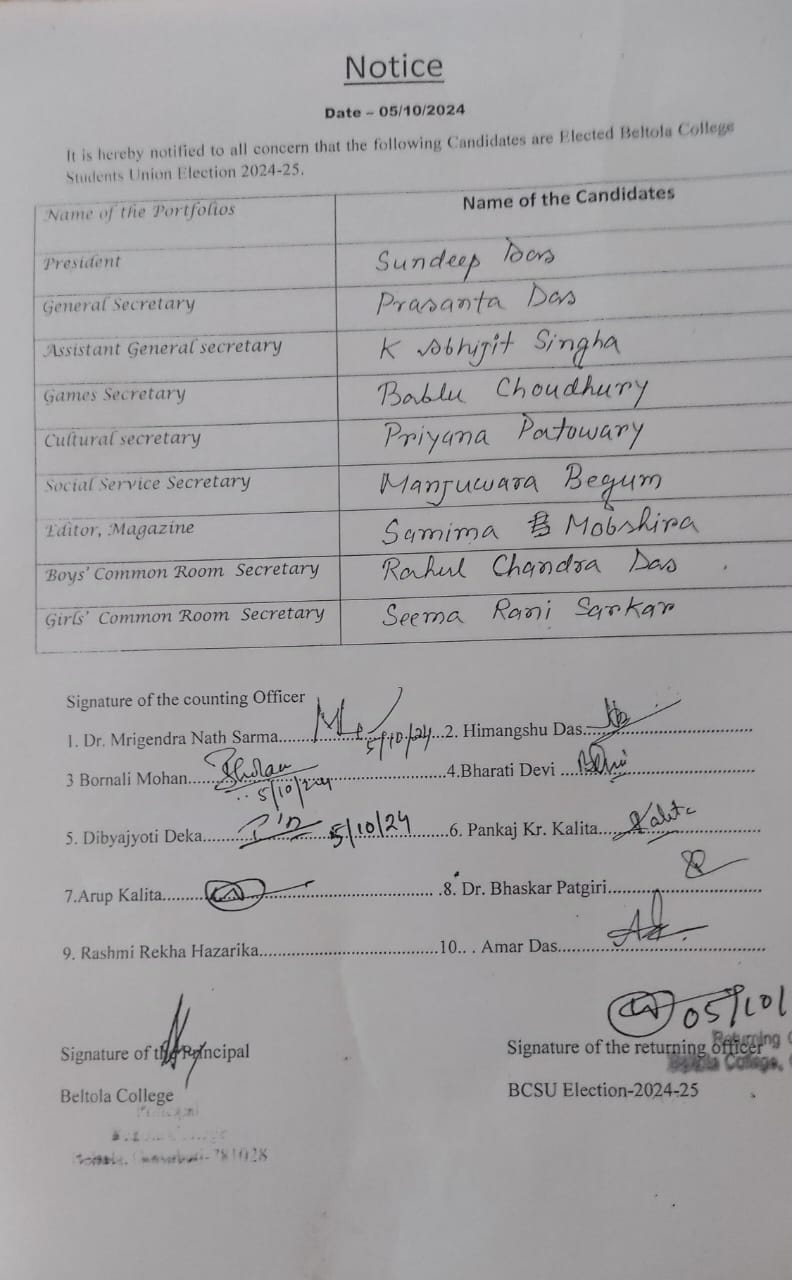 Notice
Date – 05/10/2024
It is hereby notified to all concern that the following Candidates are Elected Beltola College
Students Union Election 2024-25.
Name of the Portfolios Name of the Candidates
President Sundeep Das
General Secretary Prasanta Das
Assistant General secretary K Abhijit Singha
Games Secretary Bablu Choudhury
Cultural secretary Priyana Patowary
Social Service Secretary Manjuwara Begum
Editor, Magazine Samima Mobshira
Boys' Common Room Secretary Rahul Chandra Das
Girls' Common Room Secretary Seema Rani Sarkar
Signature of the counting Officer
1. Dr. Mrigendra Nath Sarma........ 5/10/24...2. Himangshu Das........
3 Bornali Mohan........ 5/10/24 ........4.Bharati Devi ........
5. Dibyajyoti Deka........ 5/10/24........6. Pankaj Kr. Kalita.... Kalita
7.Arup Kalita........ .8. Dr. Bhaskar Patgiri........
9. Rashmi Rekha Hazarika........10.. . Amar Das........
05/10/
Signature of the Principal Signature of the returning officer
Returning
Beltola College BCSU Election-2024-25
College,
781028